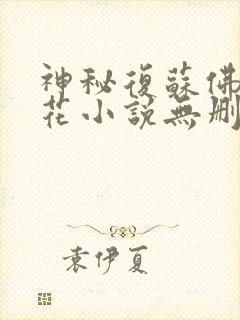 神秘復蘇佛
花小說無刪
袁伊夏